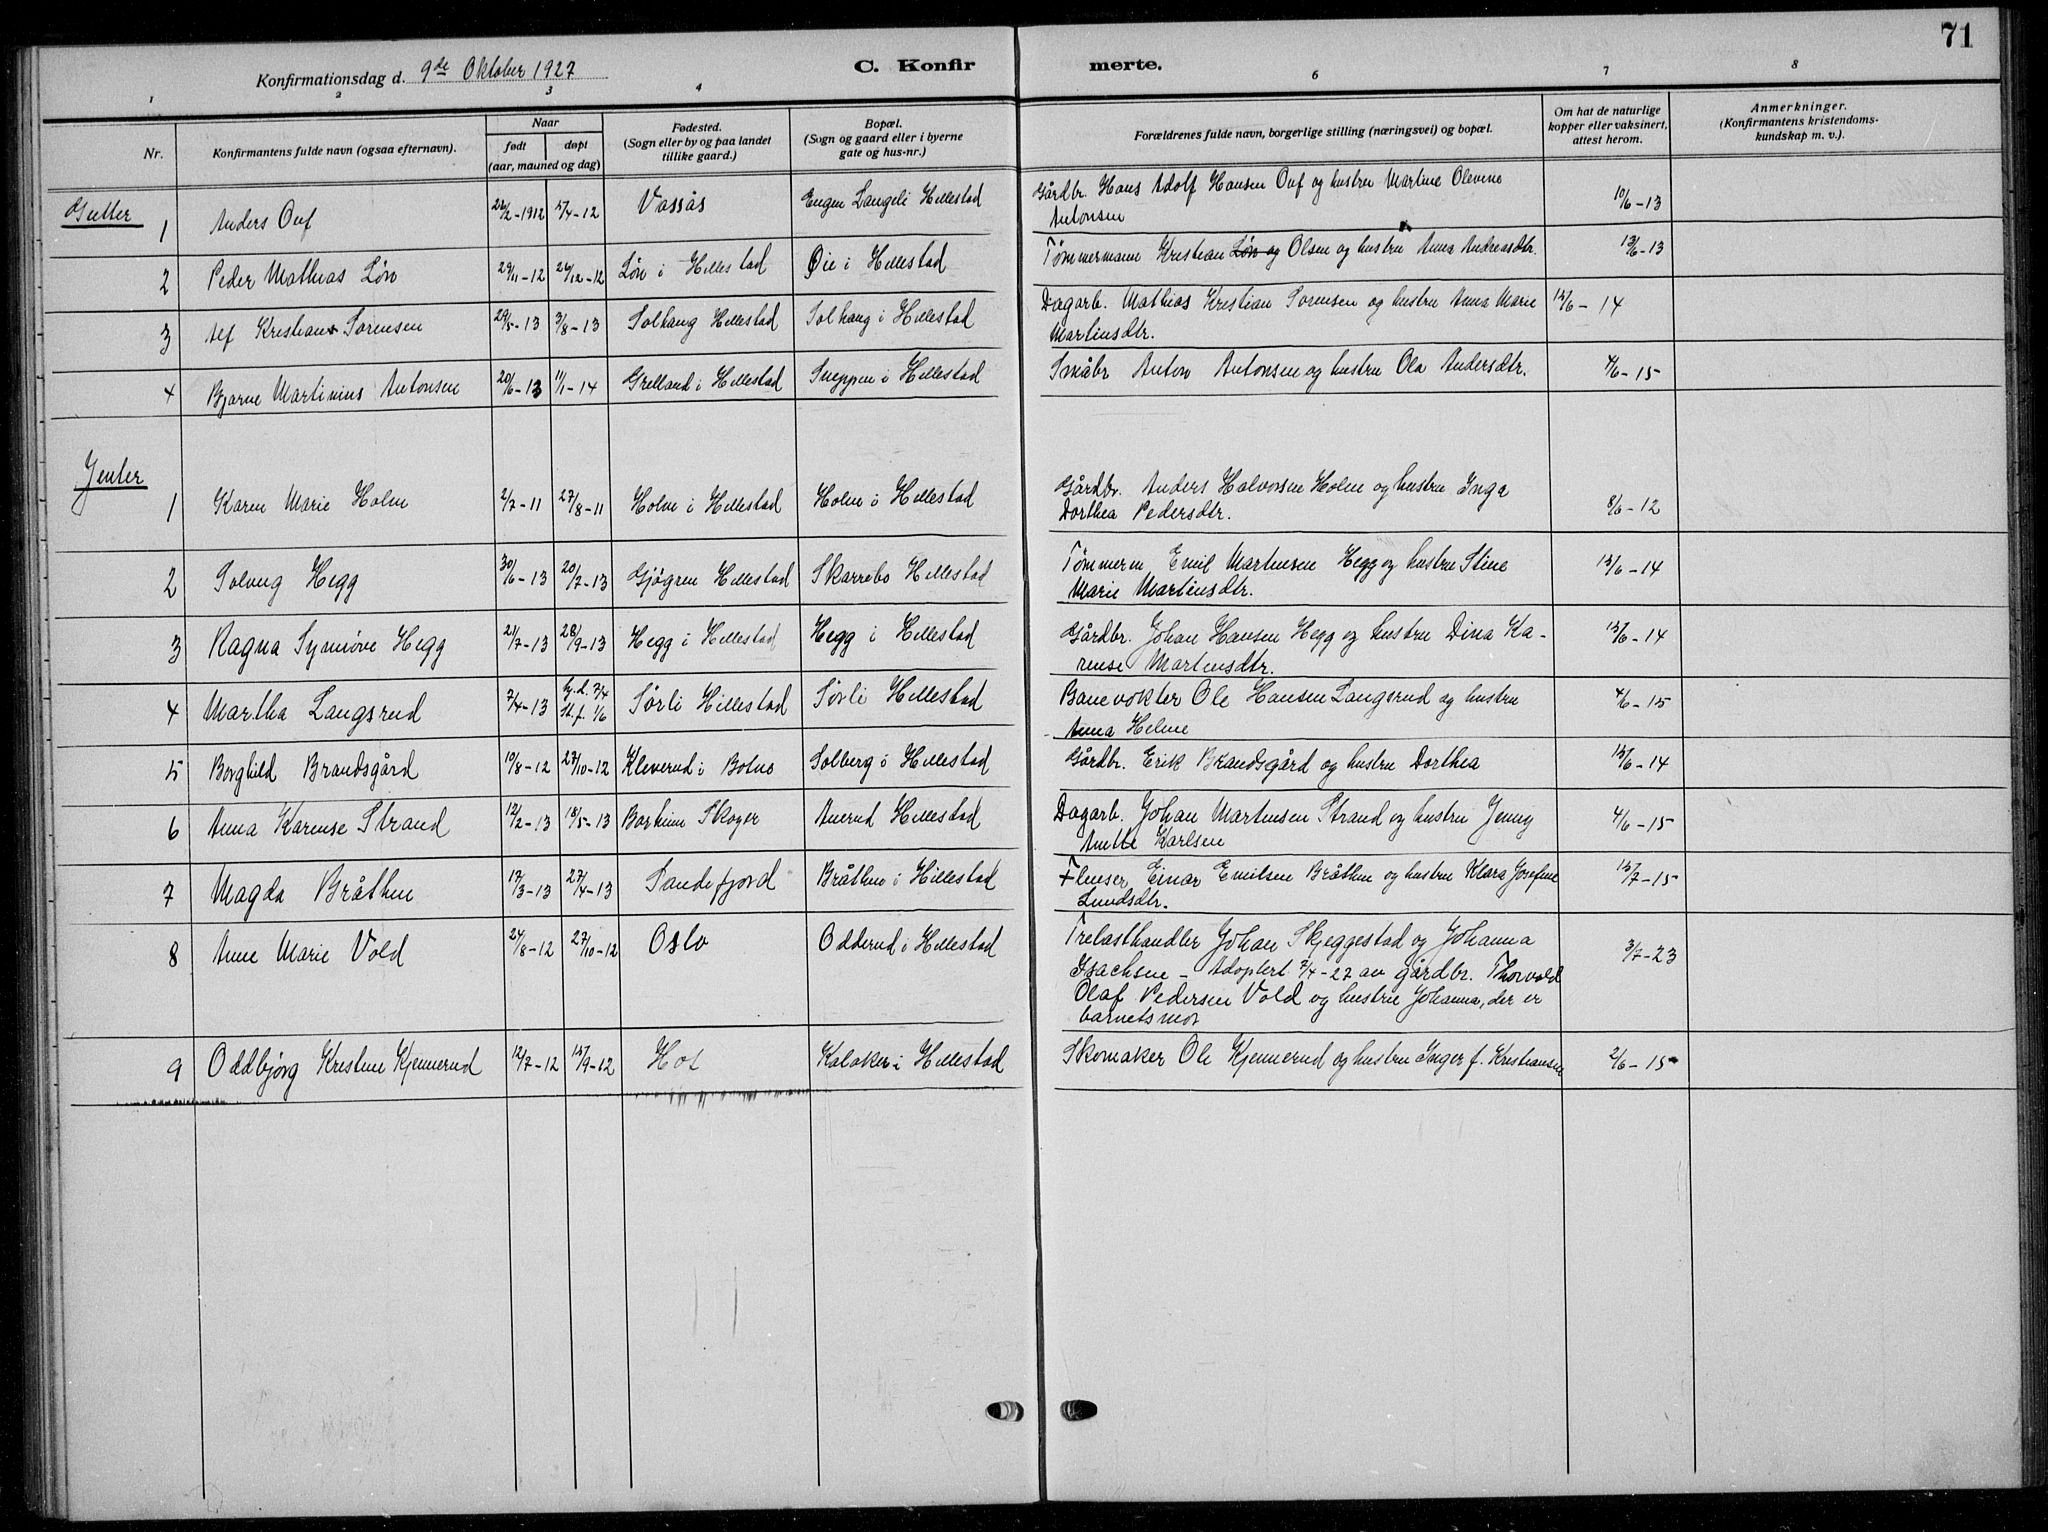 71
Konfirmationsdag d. 9de Oktober 1927
C. Konfirmerte.
1 2 3 4 6 7 8
Nr.
Konfirmantens fulde navn (ogsaa efternavn).
Naar
født
døpt
(aar, maaned og dag)
Fødested.
(Sogn eller by og paa landet
tillike gaard.)
Bopæl.
(Sogn og gaard eller i byerne
gate og hus-nr.)
Forældrenes fulde navn, borgerlige stilling (næringsvei) og bopæl.
Om hat de naturlige
kopper eller vaksinert,
attest herom.
Anmerkninger.
(Konfirmantens kristendoms-
kundskap m. v.).
Gutter
1 Anders Ouf /2-1912 /4-12 Vassås Engen Langeli Hillestad Gårdbr. Hans Adolf Hansen Ouf og hustru Martine Olevine 10/6-13
Antonsen
2 Peder Mathias Løn 29/11-12 26/12-12 Løn i Hillestad Øie i Hillestad Tømmermann Kristian Løn og Olsen og hustru Anna Andreasdtr. 13/6-13
3 Alf Kristian Sørensen 29/5-13 3/8-13 Solhaug Hillestad Solhaug i Hillestad Dagarb. Mathias Kristian Sørensen og hustru Anna Marie 15/6-14
Martinsdtr.
4 Bjarne Martinius Antonsen 20/6-13 1/1-14 Grelland i Hillestad Sneppen i Hillestad Småbr Anton Antonsen og hustru Ola Andersdtr. 4/6-15
Jenter
1 Karen Marie Holm 2/7-11 27/8-11 Holm i Hillestad Holm i Hillestad Gårdbr. Anders Halvorsen Holm og hustru Inga 8/6-12
Dorthea Pedersdtr.
2 Solveig Hegg 30/6-13 20/7-13 Gjøgren Hillestad Skarrebo Hillestad Tømmerm Emil Martinsen Hegg og hustru Stine 15/6-14
Marie Martinsdtr.
3 Ragna Synnøve Hegg 21/7-13 28/9-13 Hegg i Hillestad Hegg i Hillestad Gårdbr. Johan Hansen Hegg og hustru Dina Ka- 15/6-14
rense Martinsdtr.
4 Martha Langsrud 7/4-13 hj.d. 7/4 Sørli Hillestad Sørli Hillestad Banevokter Ole Hansen Langsrud og hustru 4/6-15
st.f. 1/6 Anna Helene
5 Borghild Brandsgård 10/8-12 27/10-12 Kleverud i Botne Solberg i Hillestad Gårdbr. Erik Brandsgård og hustru Dorthea 15/6-14
6 Anna Karense Strand 12/2-13 18/5-13 Borheim Skoger Anerud Hillestad Dagarb. Johan Martinsen Strand og hustru Jenny 4/6-15
Anette Karlsen
7 Magda Bråthen 17/3-13 27/4-13 Sandefjord Bråthen i Hillestad Flenser Einar Emilsen Bråthen og hustru Klara Josefine 15/7-15
Lundsdtr.
8 Anne Marie Vold 24/8-12 27/10-12 Oslo Odderud i Hillestad Trelasthandler Johan Skjeggestad og Johanna 3/7-23
Isachsen - Adoptert 7/4-27 av gårdbr. Thorvald
Olaf Pedersen Vold og hustru Johanna, der er
barnets mor
9 Oddbjørg Kristine Kjennerud 12/7-12 15/9-12 Hof Kalaker i Hillestad Skomaker Ole Kjennerud og hustru Inger f. Kristiansen 2/6-15